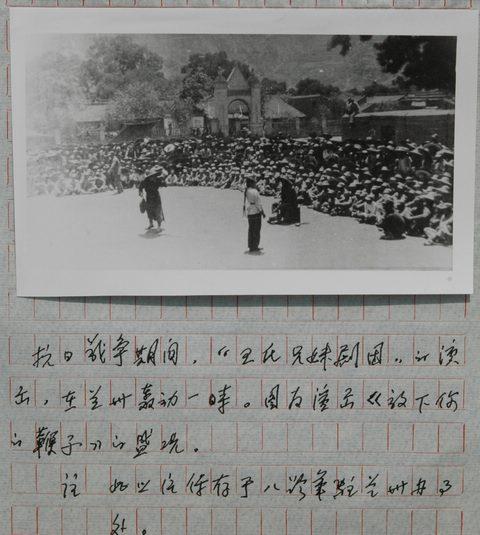 抗日战争期间，“王氏兄妹剧团”的演
出，在兰州轰动一时。图为演出《放下你
的鞭子》的盛况。
注 此照保存于八路军驻兰州办事
处。